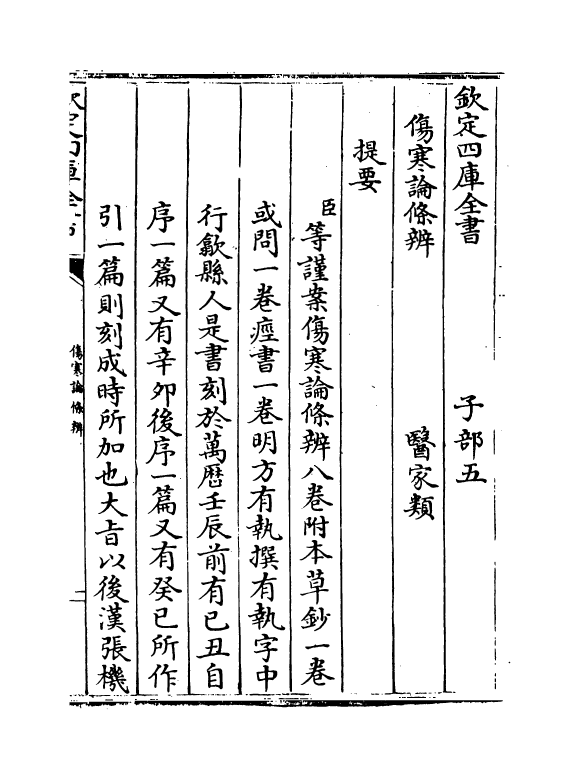 欽定四庫全書　子部五
傷寒論條辨　醫家類
提要
臣等謹案傷寒論條辨八卷附本草鈔一卷
或問一卷痙書一卷明方有執撰有執字中
行歙縣人是書刻於萬厯壬辰前有己丑自
序一篇又有辛卯後序一篇又有癸巳所作
引一篇則刻成時所加也大旨以後漢張機
傷寒論條辨